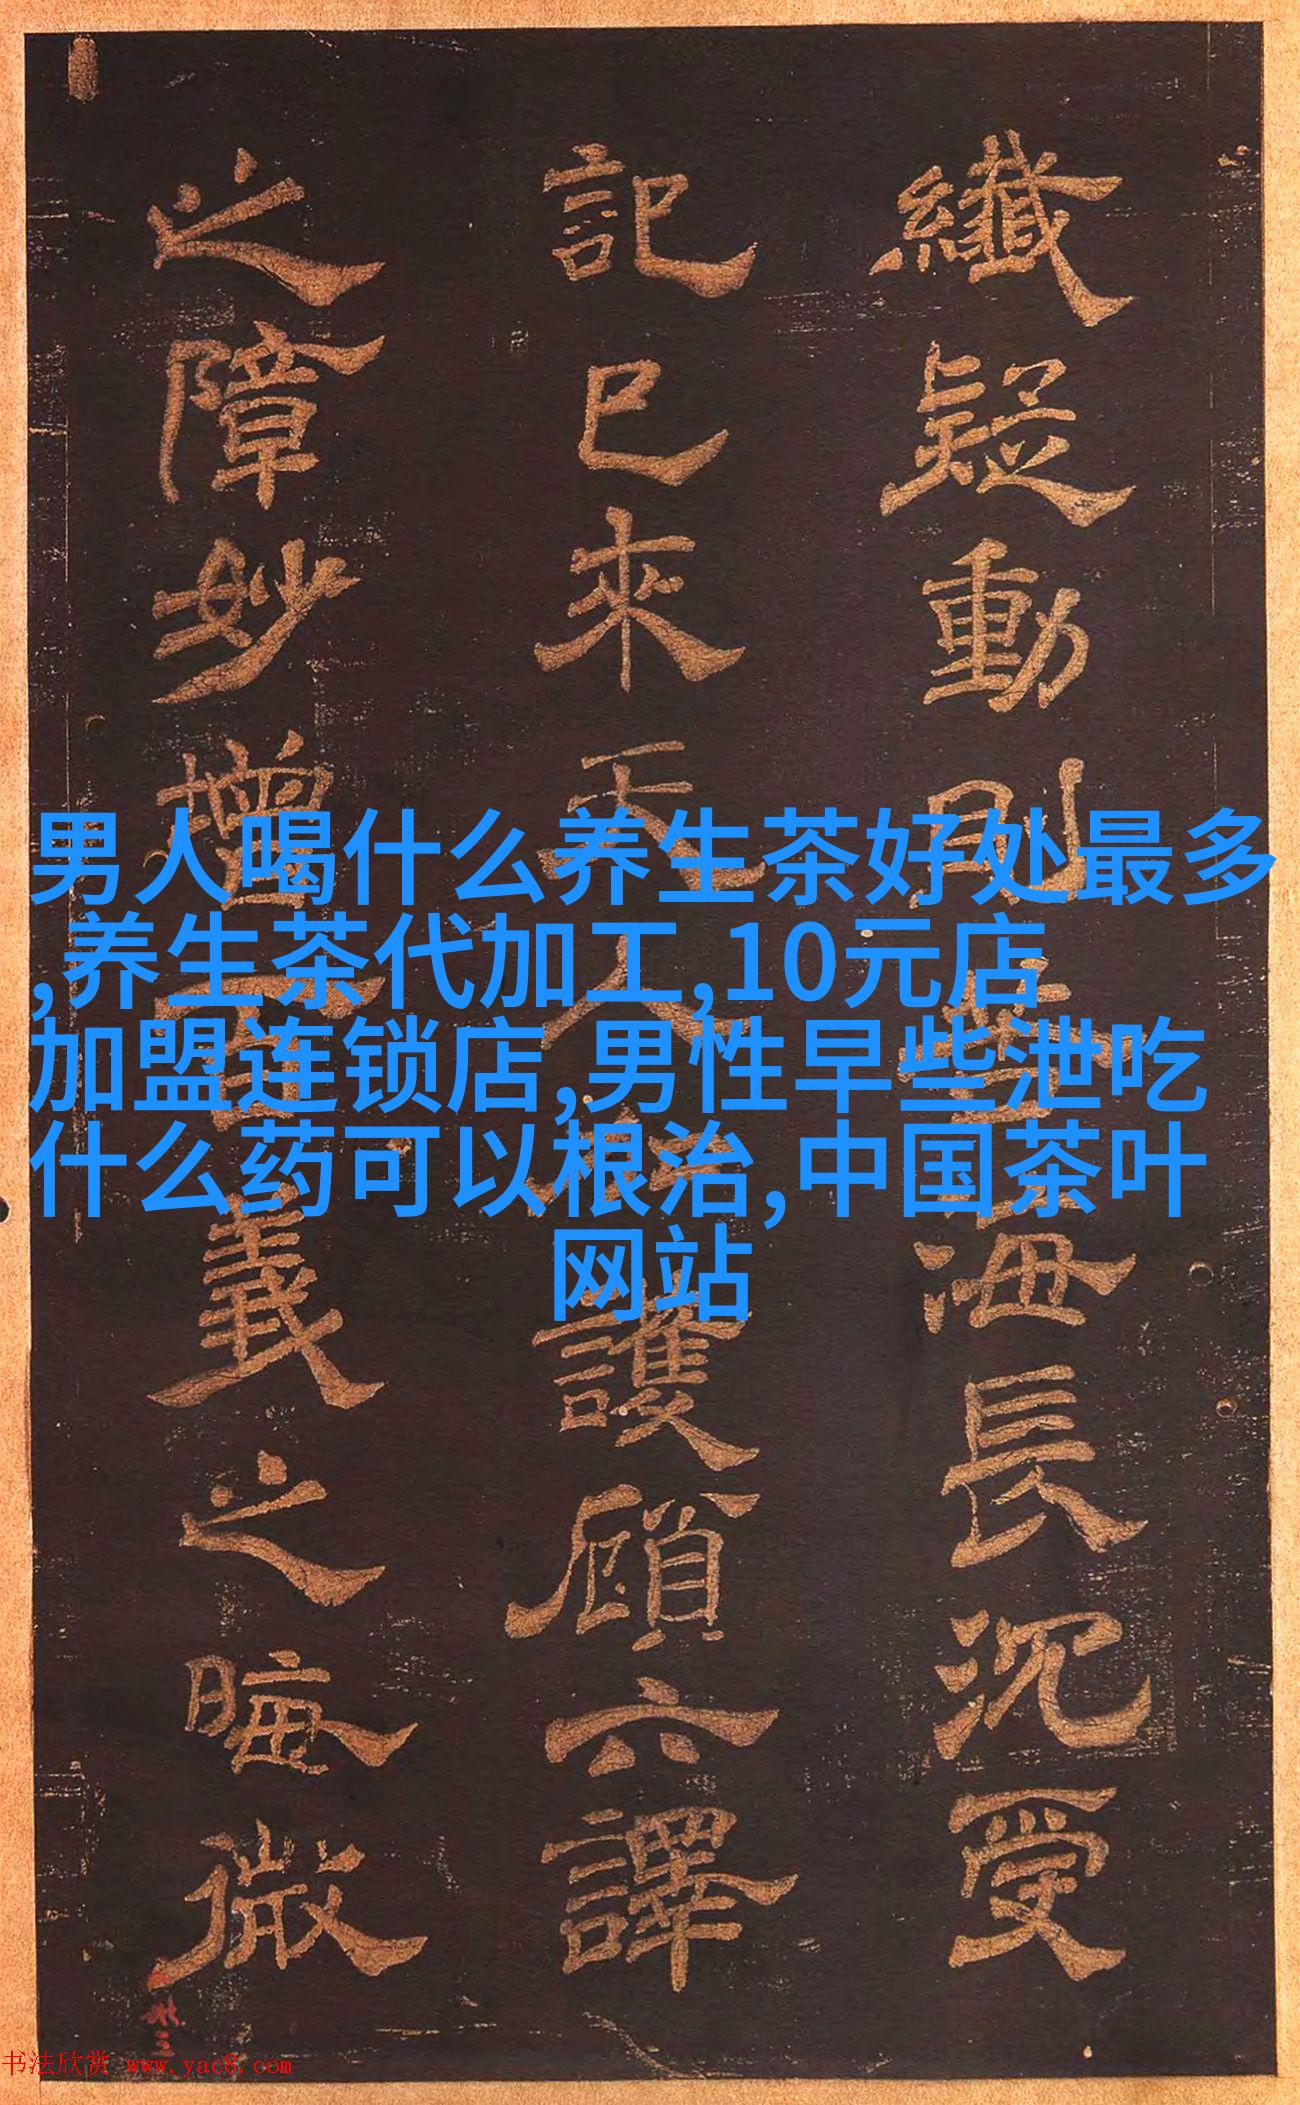 纖疑動則
海長沉受
記已來天人
護顧六譯
之障妙增一
義之晦微
男人喝什么养生茶好处最多
,养生茶代加工,10元店
加盟连锁店,男性早些泄吃
什么药可以根治,中国茶叶
网站
书法欣赏 www.yac8.com